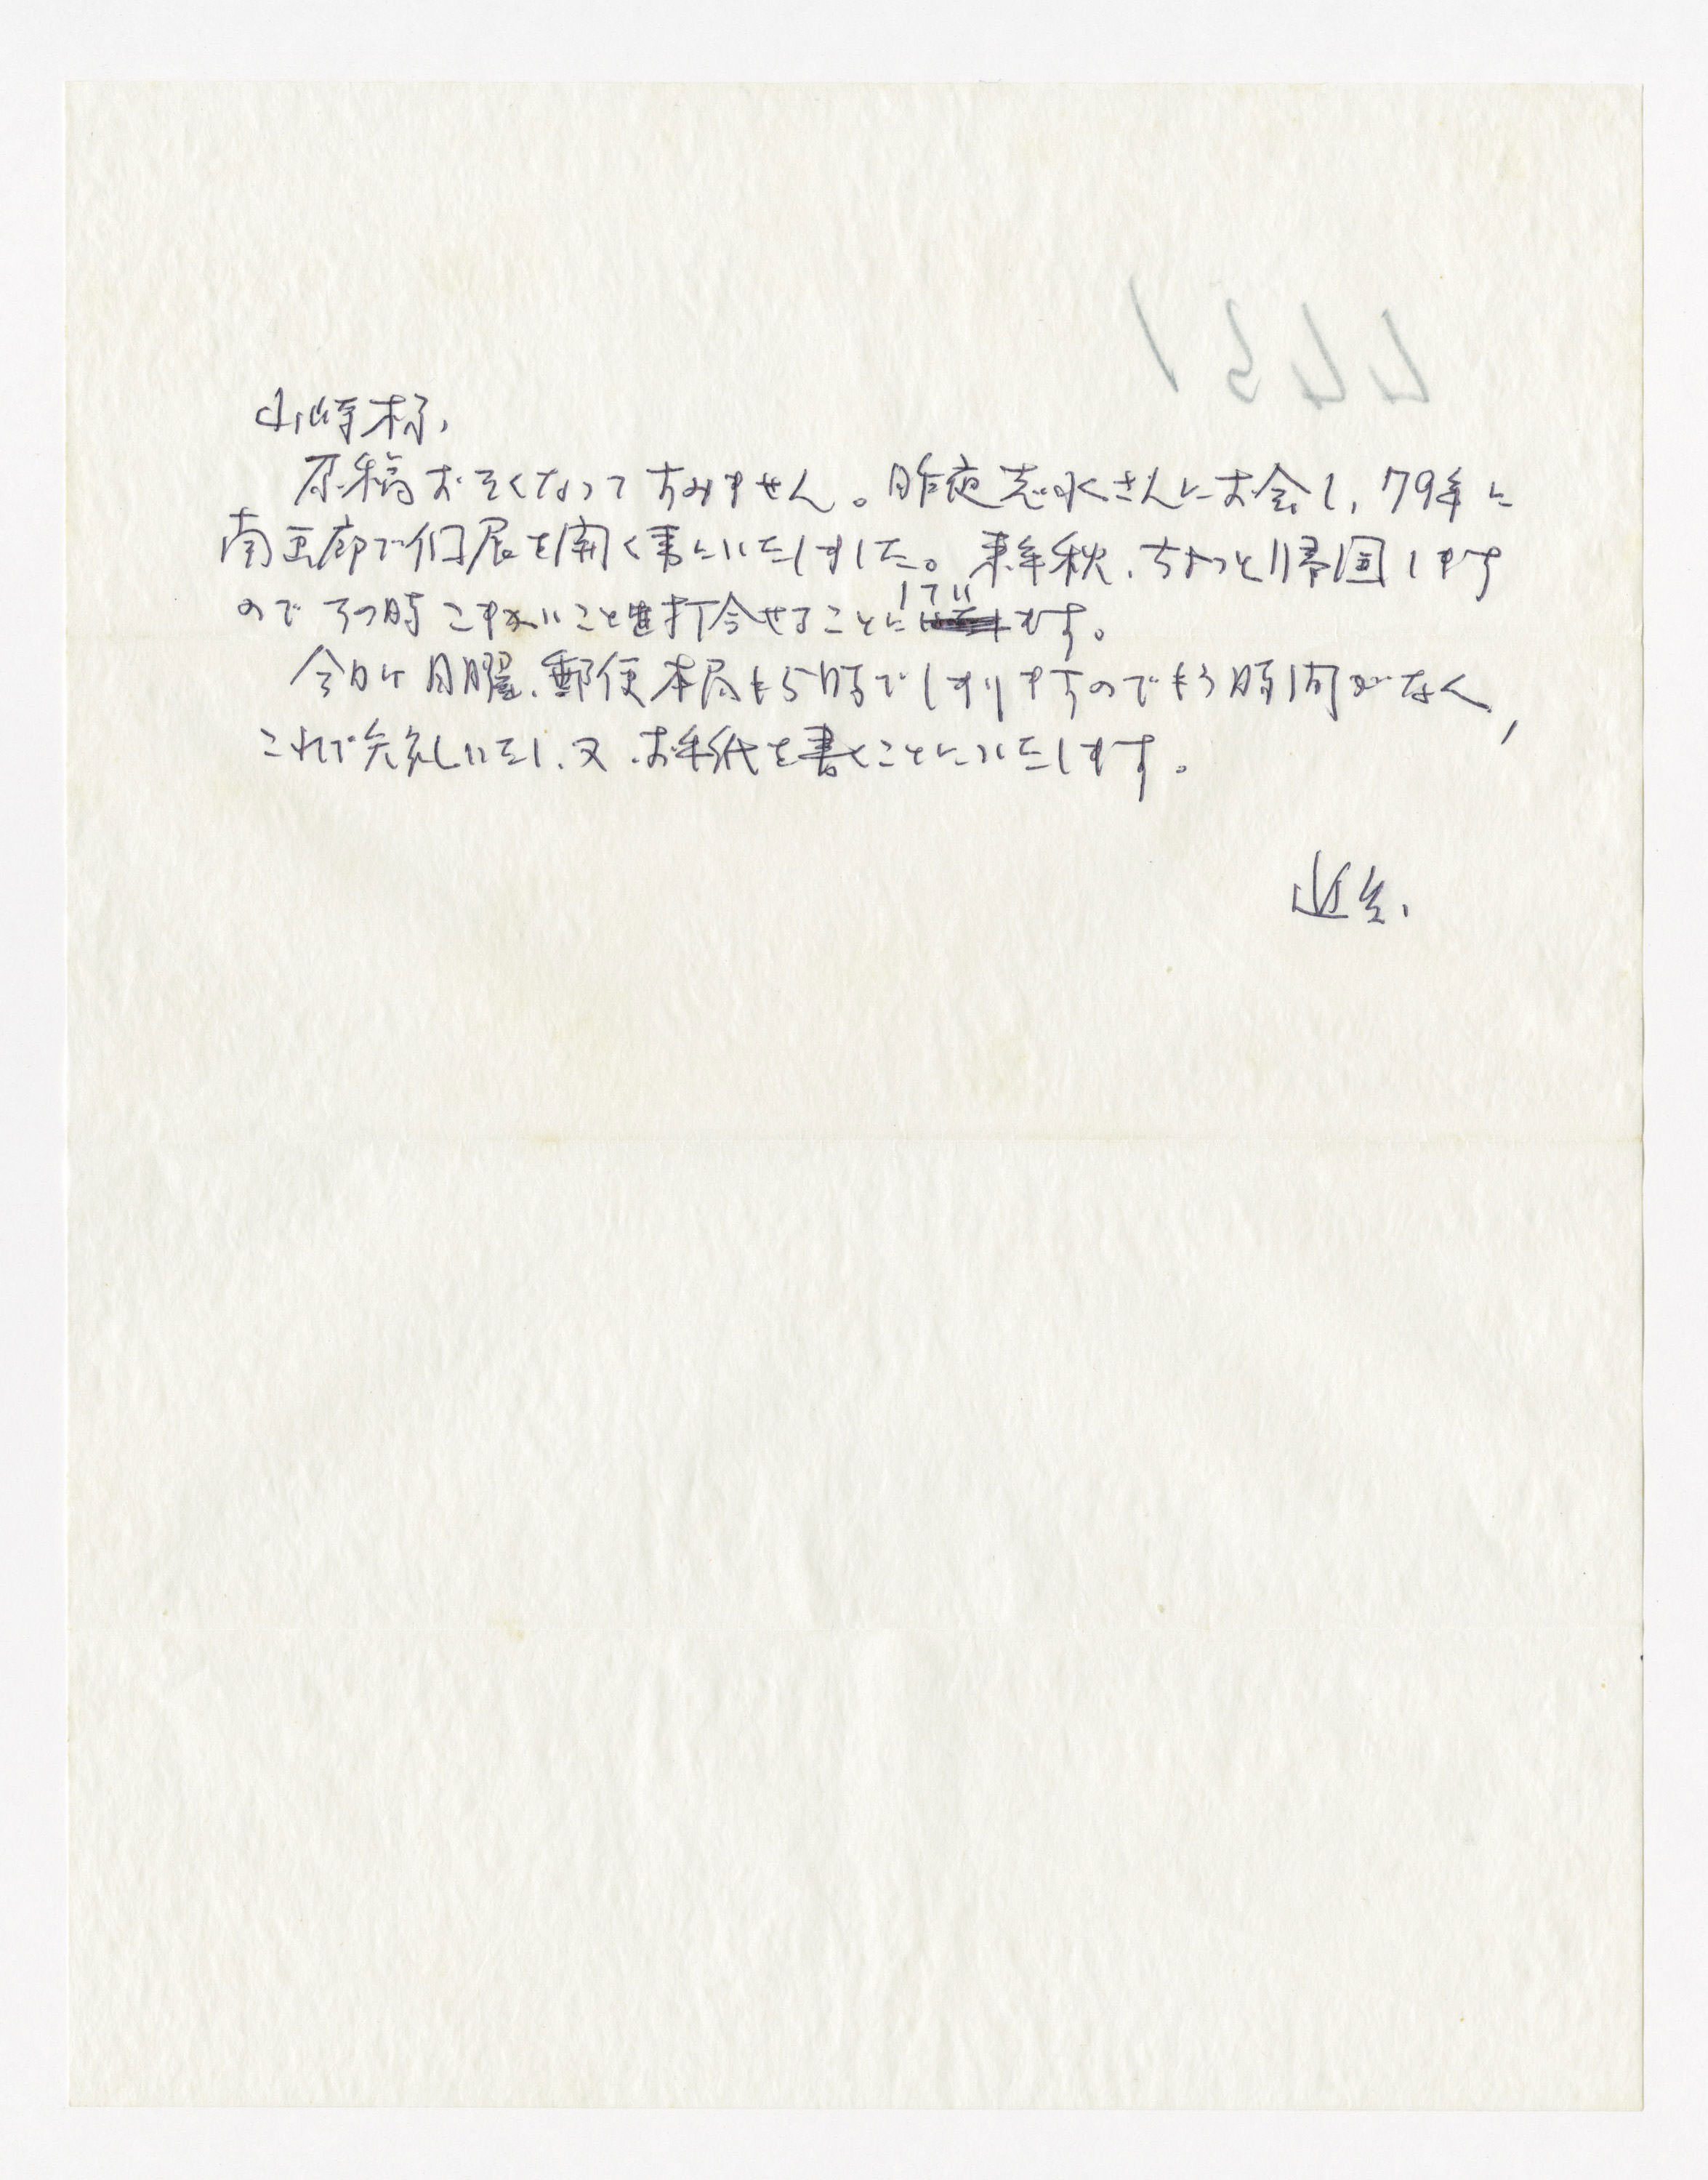 山崎様、
原稿おそくなってすみません。昨夜志水さんにお会し、79年に
南画廊で個展を開く事にいたしました。来年秋、ちょっと帰国します
のでその時こまかいことを打合せることにしています。
今日は日曜、郵便本局も5時でしまりますのでもう時間がなく、
これで失礼いたし、又、お手紙を書くことにいたします。